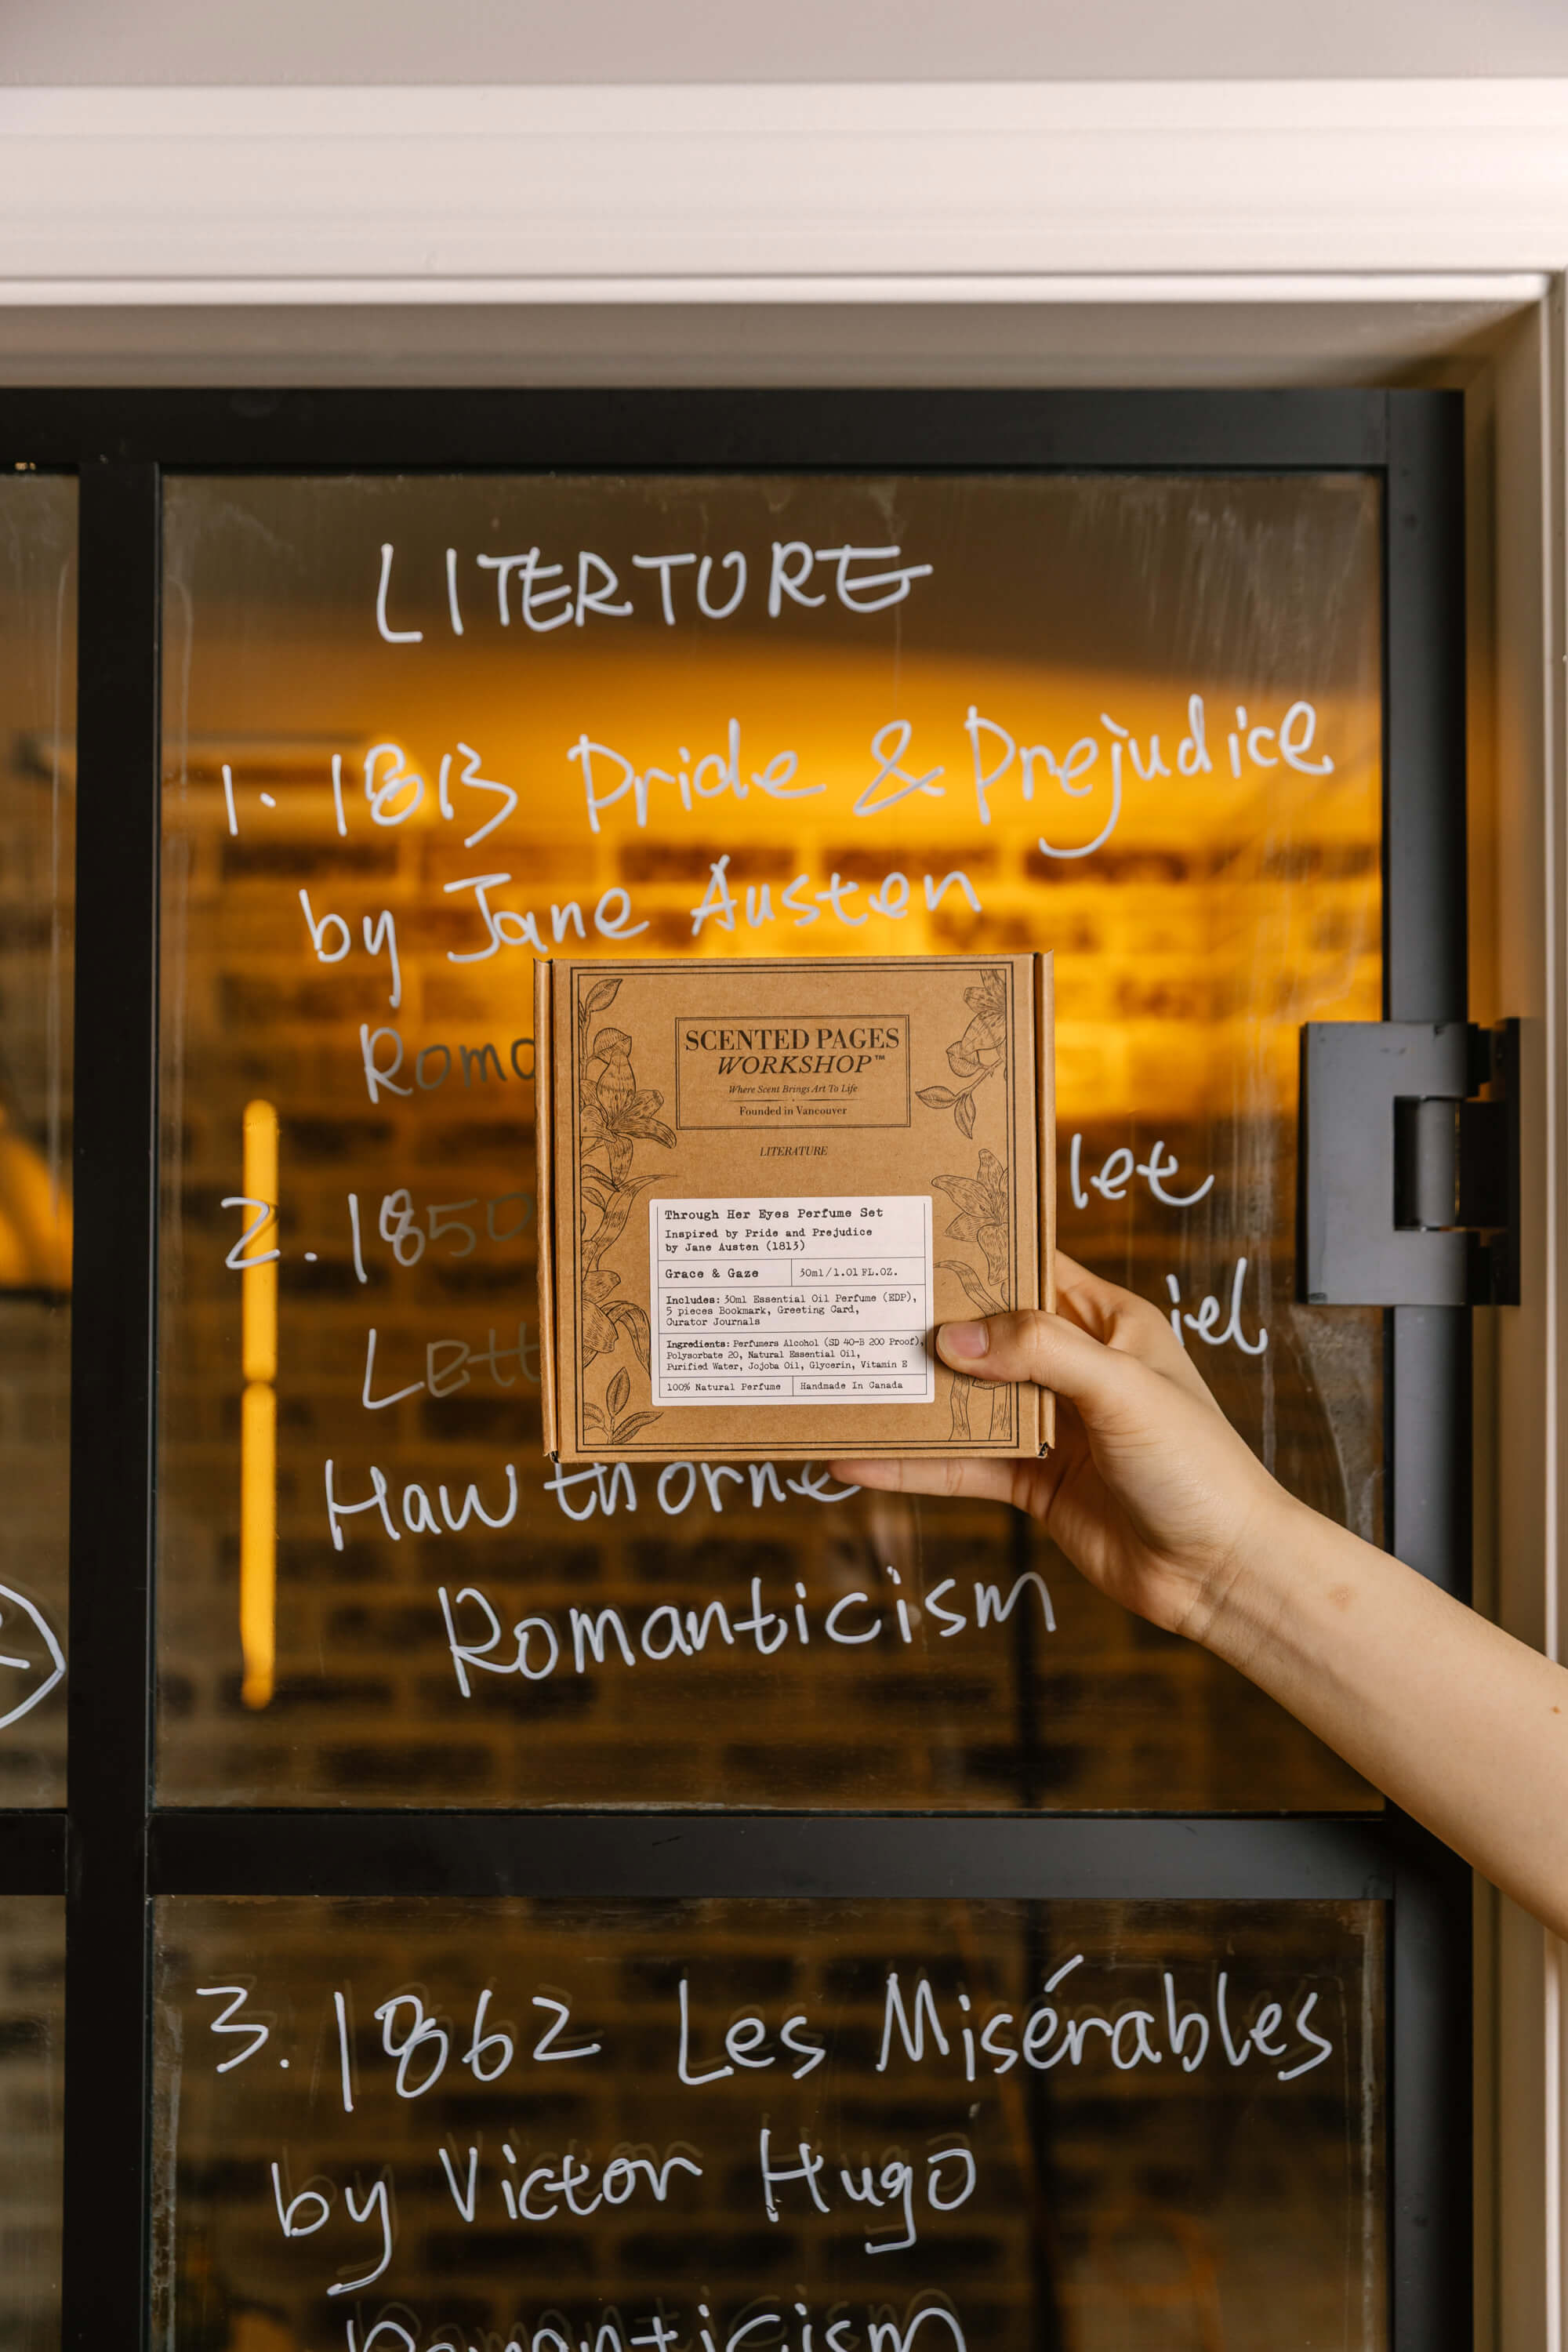 LITERTURE
1. 1813 Pride & Prejudice
by Jane Austen
SCENTED PAGES
WORKSHOP™
Where Scent Brings Art To Life
Founded in Vancouver
LITERATURE
Through Her Eyes Perfume Set
Inspired by Pride and Prejudice
by Jane Austen (1813)
Grace & Gaze
30ml/1.01 FL.OZ.
Includes: 30ml Essential Oil Perfume (EDP),
5 pieces Bookmark, Greeting Card,
Curator Journals
Ingredients: Perfumers Alcohol (SD 40-B 200 Proof),
Polysorbate 20, Natural Essential Oil,
Purified Water, Jojoba Oil, Glycerin, Vitamin E
100% Natural Perfume
Handmade In Canada
2. 1850
Hawthorne
Romanticism
3. 1862 Les Misérables
by Victor Hugo
Romanticism